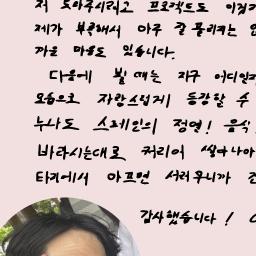 저 도와주시려고 프로젝트도
제가 부족해서 아주 잘 풀리는
까운 마음도 있습니다.
다음에 뵐 때는 지구 어디일
모습으로 자랑스럽게 등장할 수
누나도 스페인의 정열! 음식
바라시는대로 커리어 쌓아나
타지에서 아프면 서러우니까 건
감사했습니다!